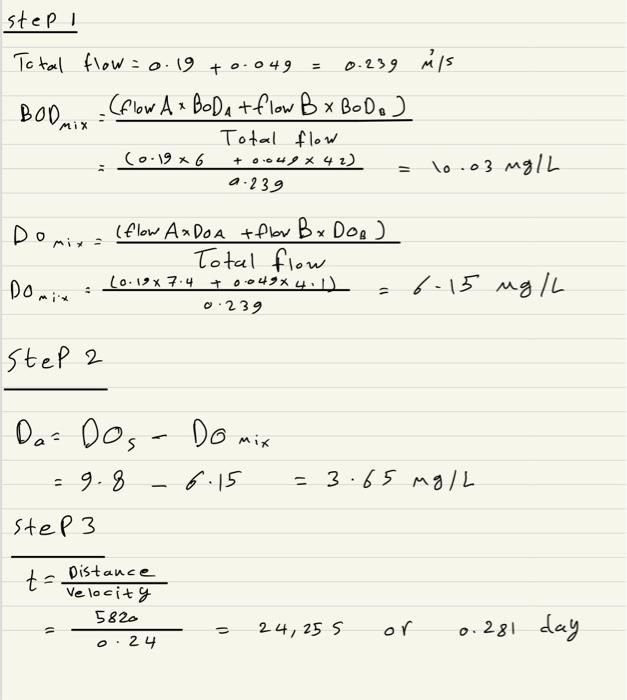 step 1
Total flow = 0.19 + 0.049 = 0.239 m³/s
BOD mix = (flow A × BOD A + flow B × BOD B) / Total flow
= (0.19 × 6 + 0.049 × 42) / 0.239 = 10.03 mg/L
DO mix = (flow A × DO A + flow B × DO B) / Total flow
DO mix = (0.19 × 7.4 + 0.049 × 4.1) / 0.239 = 6.15 mg/L
Step 2
Da = DOs - DO mix
= 9.8 - 6.15 = 3.65 mg/L
step 3
t = Distance / Velocity
= 5820 / 0.24 = 24,25 s or 0.281 day